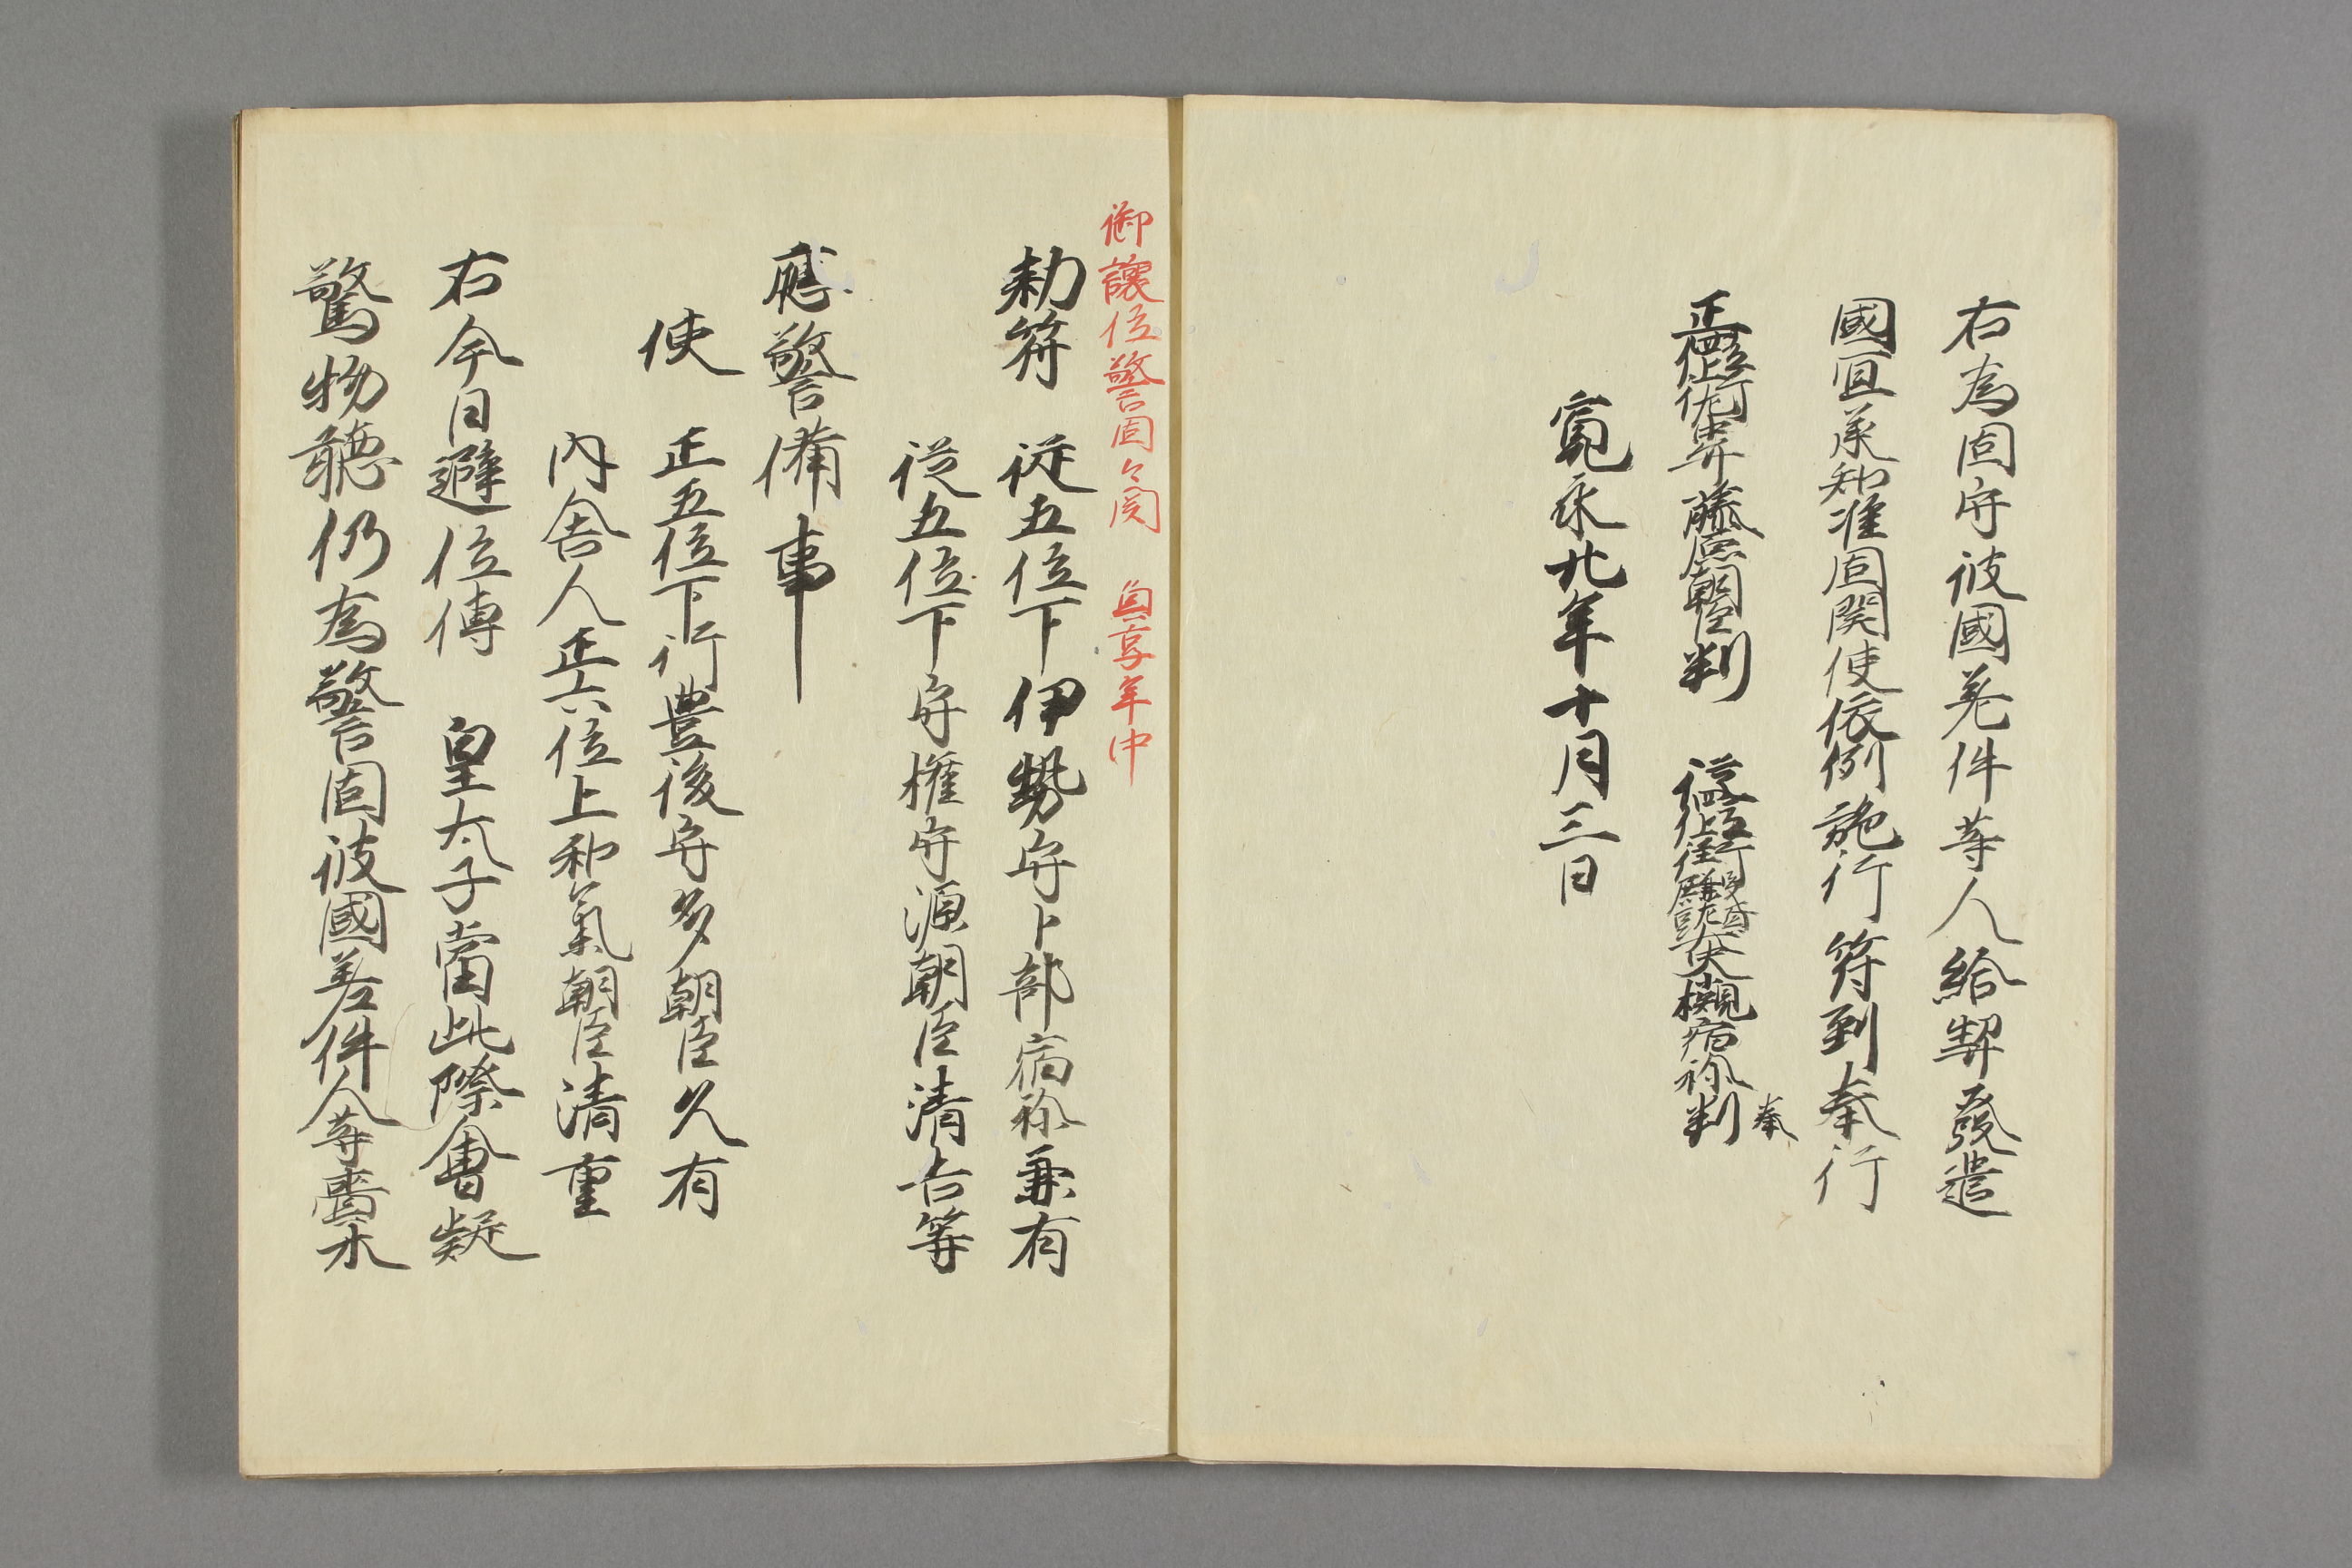 右為固守彼國差件等人給契發遣
國宜承知准固関使依例施行符到奉行
正四位上行右中弁藤原朝臣判 従四位上行主殿頭兼左大史小槻宿祢判奉
寛永廿年十月三日
御譲位警固々関 貞享年中
勅符 従五位下伊勢守卜部宿祢兼有
従五位下守権守源朝臣清古等
應警備事
使 正五位下行豊後守多朝臣久有
内舎人正六位上和氣朝臣清重
右今日避位傳 皇太子當此際會疑
驚物聴仍為警固彼國差件人等賷木